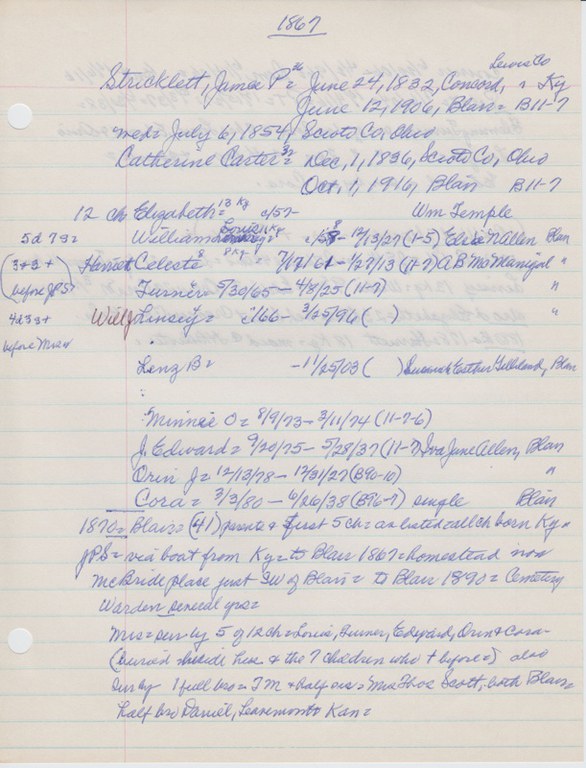 1867
Lewis Co
Stricklett, James P = June 24, 1832, Concord, Ky
June 12, 1906, Blair = B11-7
med = July 6, 1854, Scioto Co, Ohio
Catherine Carter = Dec, 1, 1836, Scioto Co, Ohio
Oct, 1, 1916, Blair B11-7
12 ch Elizabeth = 13 Ky c/57- Wm Temple
5d 7s = William = Louis 11 Ky c/58 - 12/13/27 (1-5) Nallen Blair
(3+3+ Harriet Celeste 8 Ky 7/17/61 - 1/27/13 (11-7) A B McManigal "
before JPS) Turner = 5/30/65 - 4/8/25 (11-7) "
4d 3s+ Will Linsey = c/66 - 3/25/96 ( ) "
before Mrs
Lenz B = - 11/25/03 ( ) Esther Gilliland, Blair
Minnie O = 8/9/73 - 3/11/74 (11-7-6)
J. Edward = 9/20/75 - 5/28/37 (11-7) Iva June Allen, Blair
Orin J = 12/13/78 - 12/31/27 (B90-10) "
Cora = 3/3/80 - 6/26/38 (B96-7) single Blair
1870 = Blair = (41) parents & first 5 ch = as listed all ch born Ky =
JPS = via boat from Ky = to Blair 1867 = homestead now
McBride place just SW of Blair = to Blair 1890 = Cemetery
Warden several yrs =
Mrs = sur by 5 of 12 ch = Louis, Turner, Edward, Orin & Cora -
(buried beside her & the 7 children who + before) also
sur by 1 full bro = T M & half sis = Mrs Thos Scott, both Blair =
half bro Daniel, Kan =